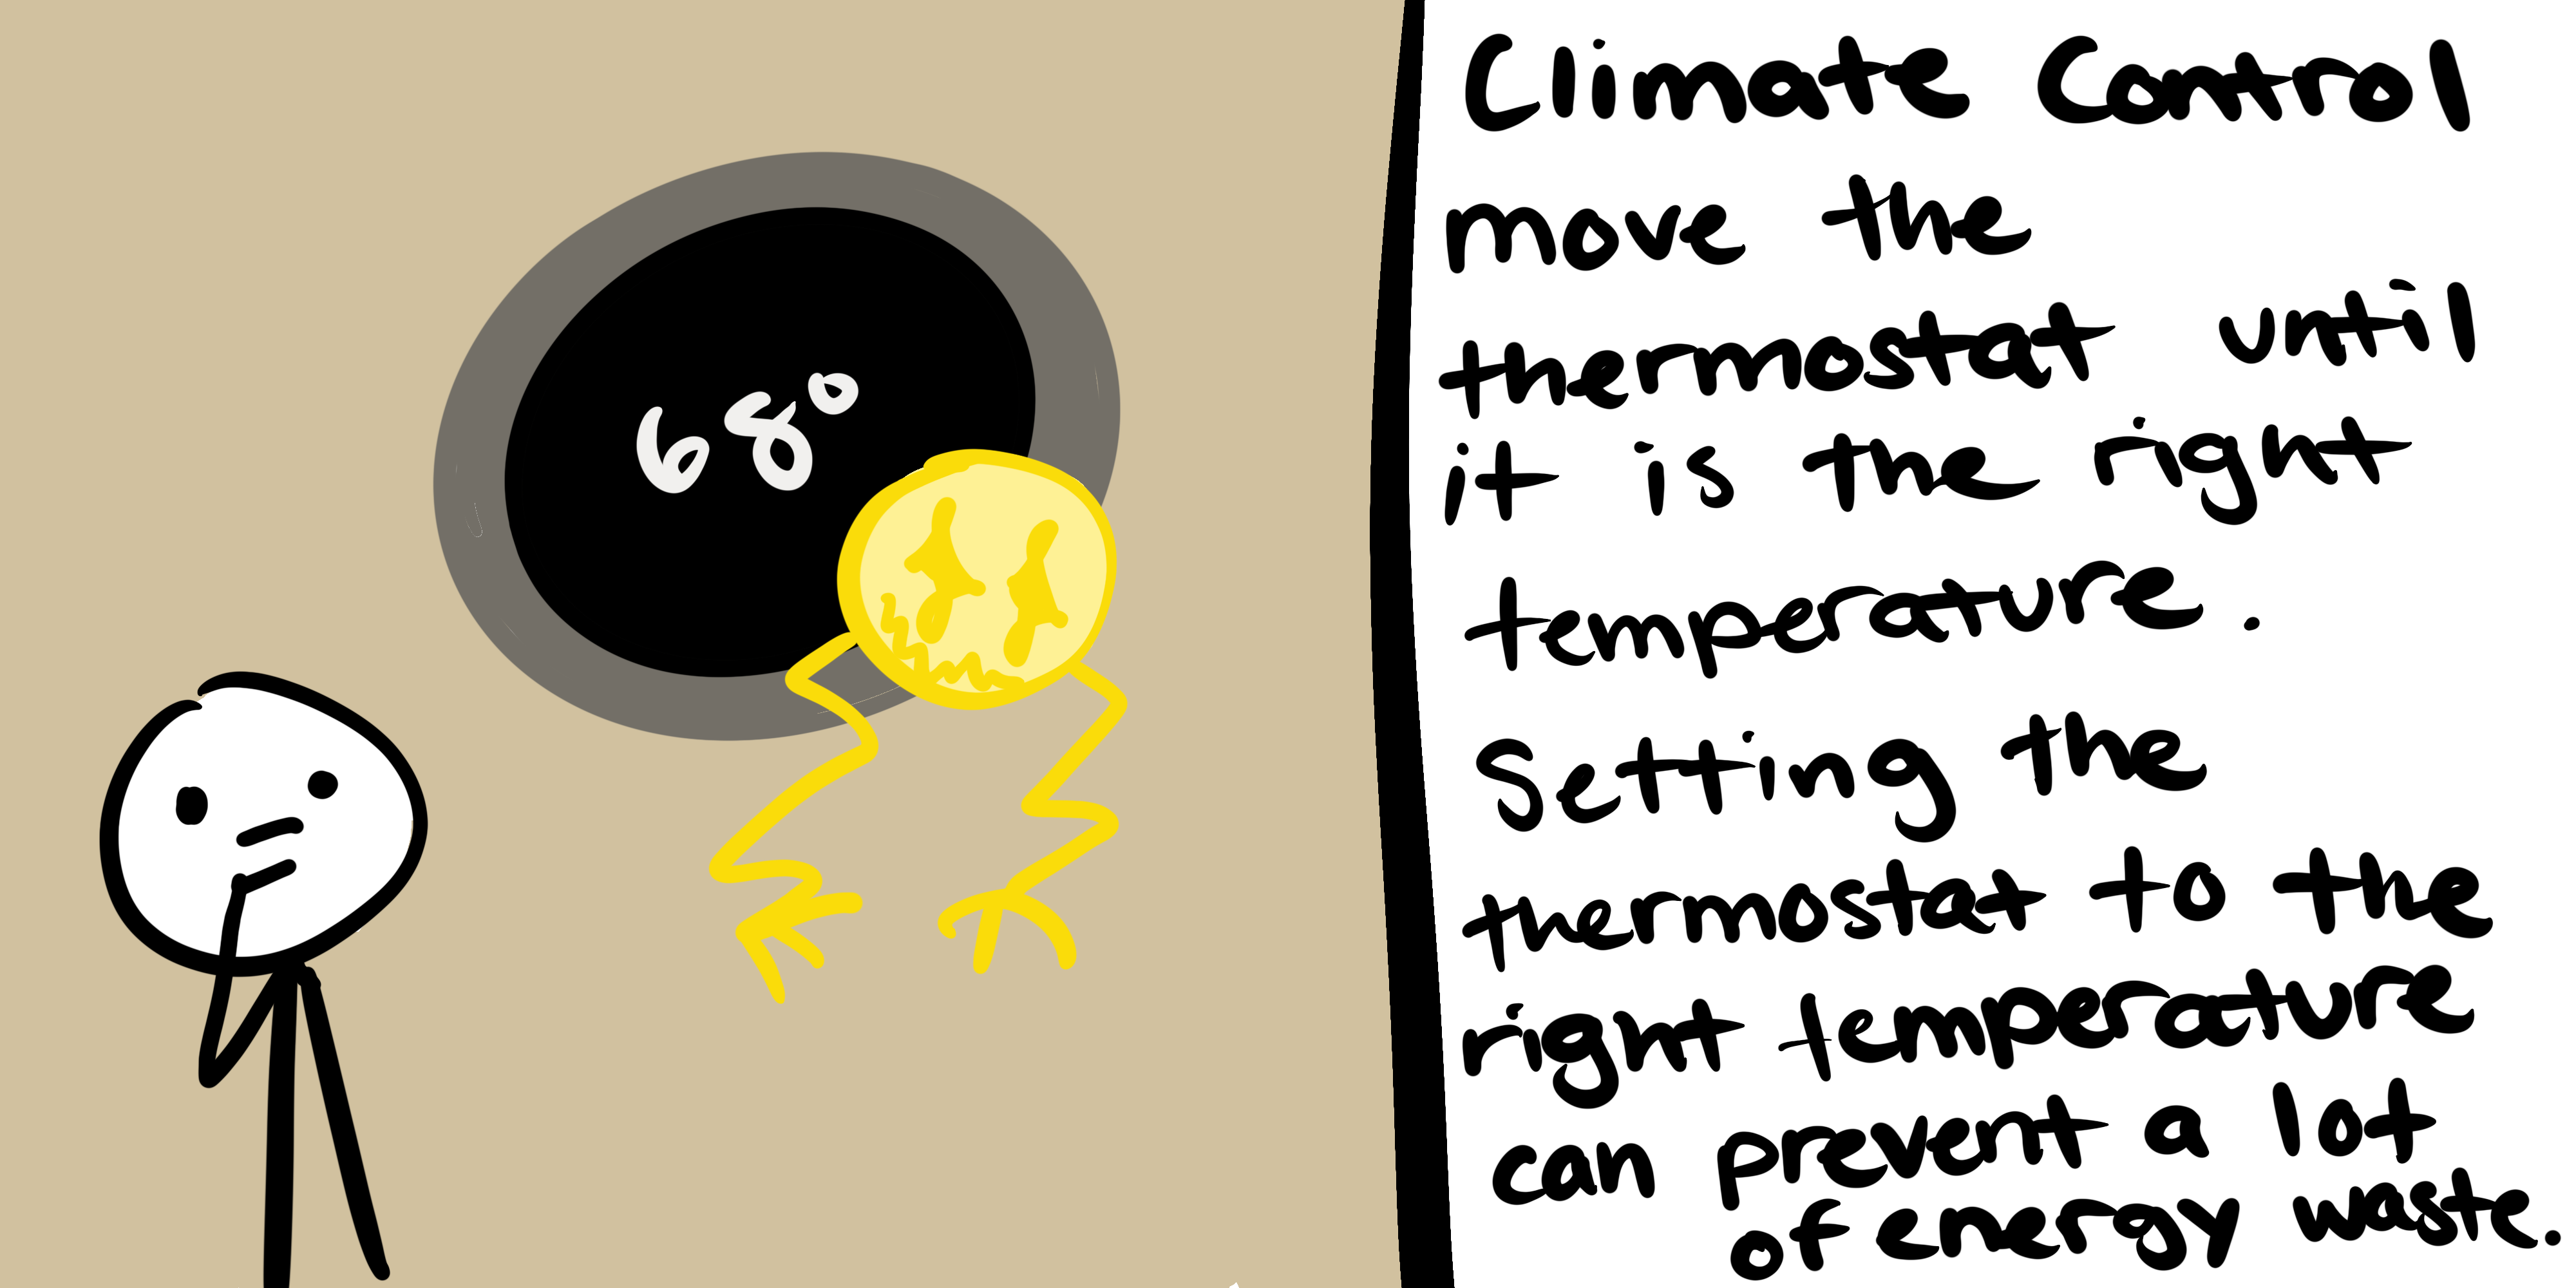 68°
Climate Control
move the
thermostat until
it is the right
temperature.
Setting the
thermostat to the
right temperature
can prevent a lot
of energy waste.